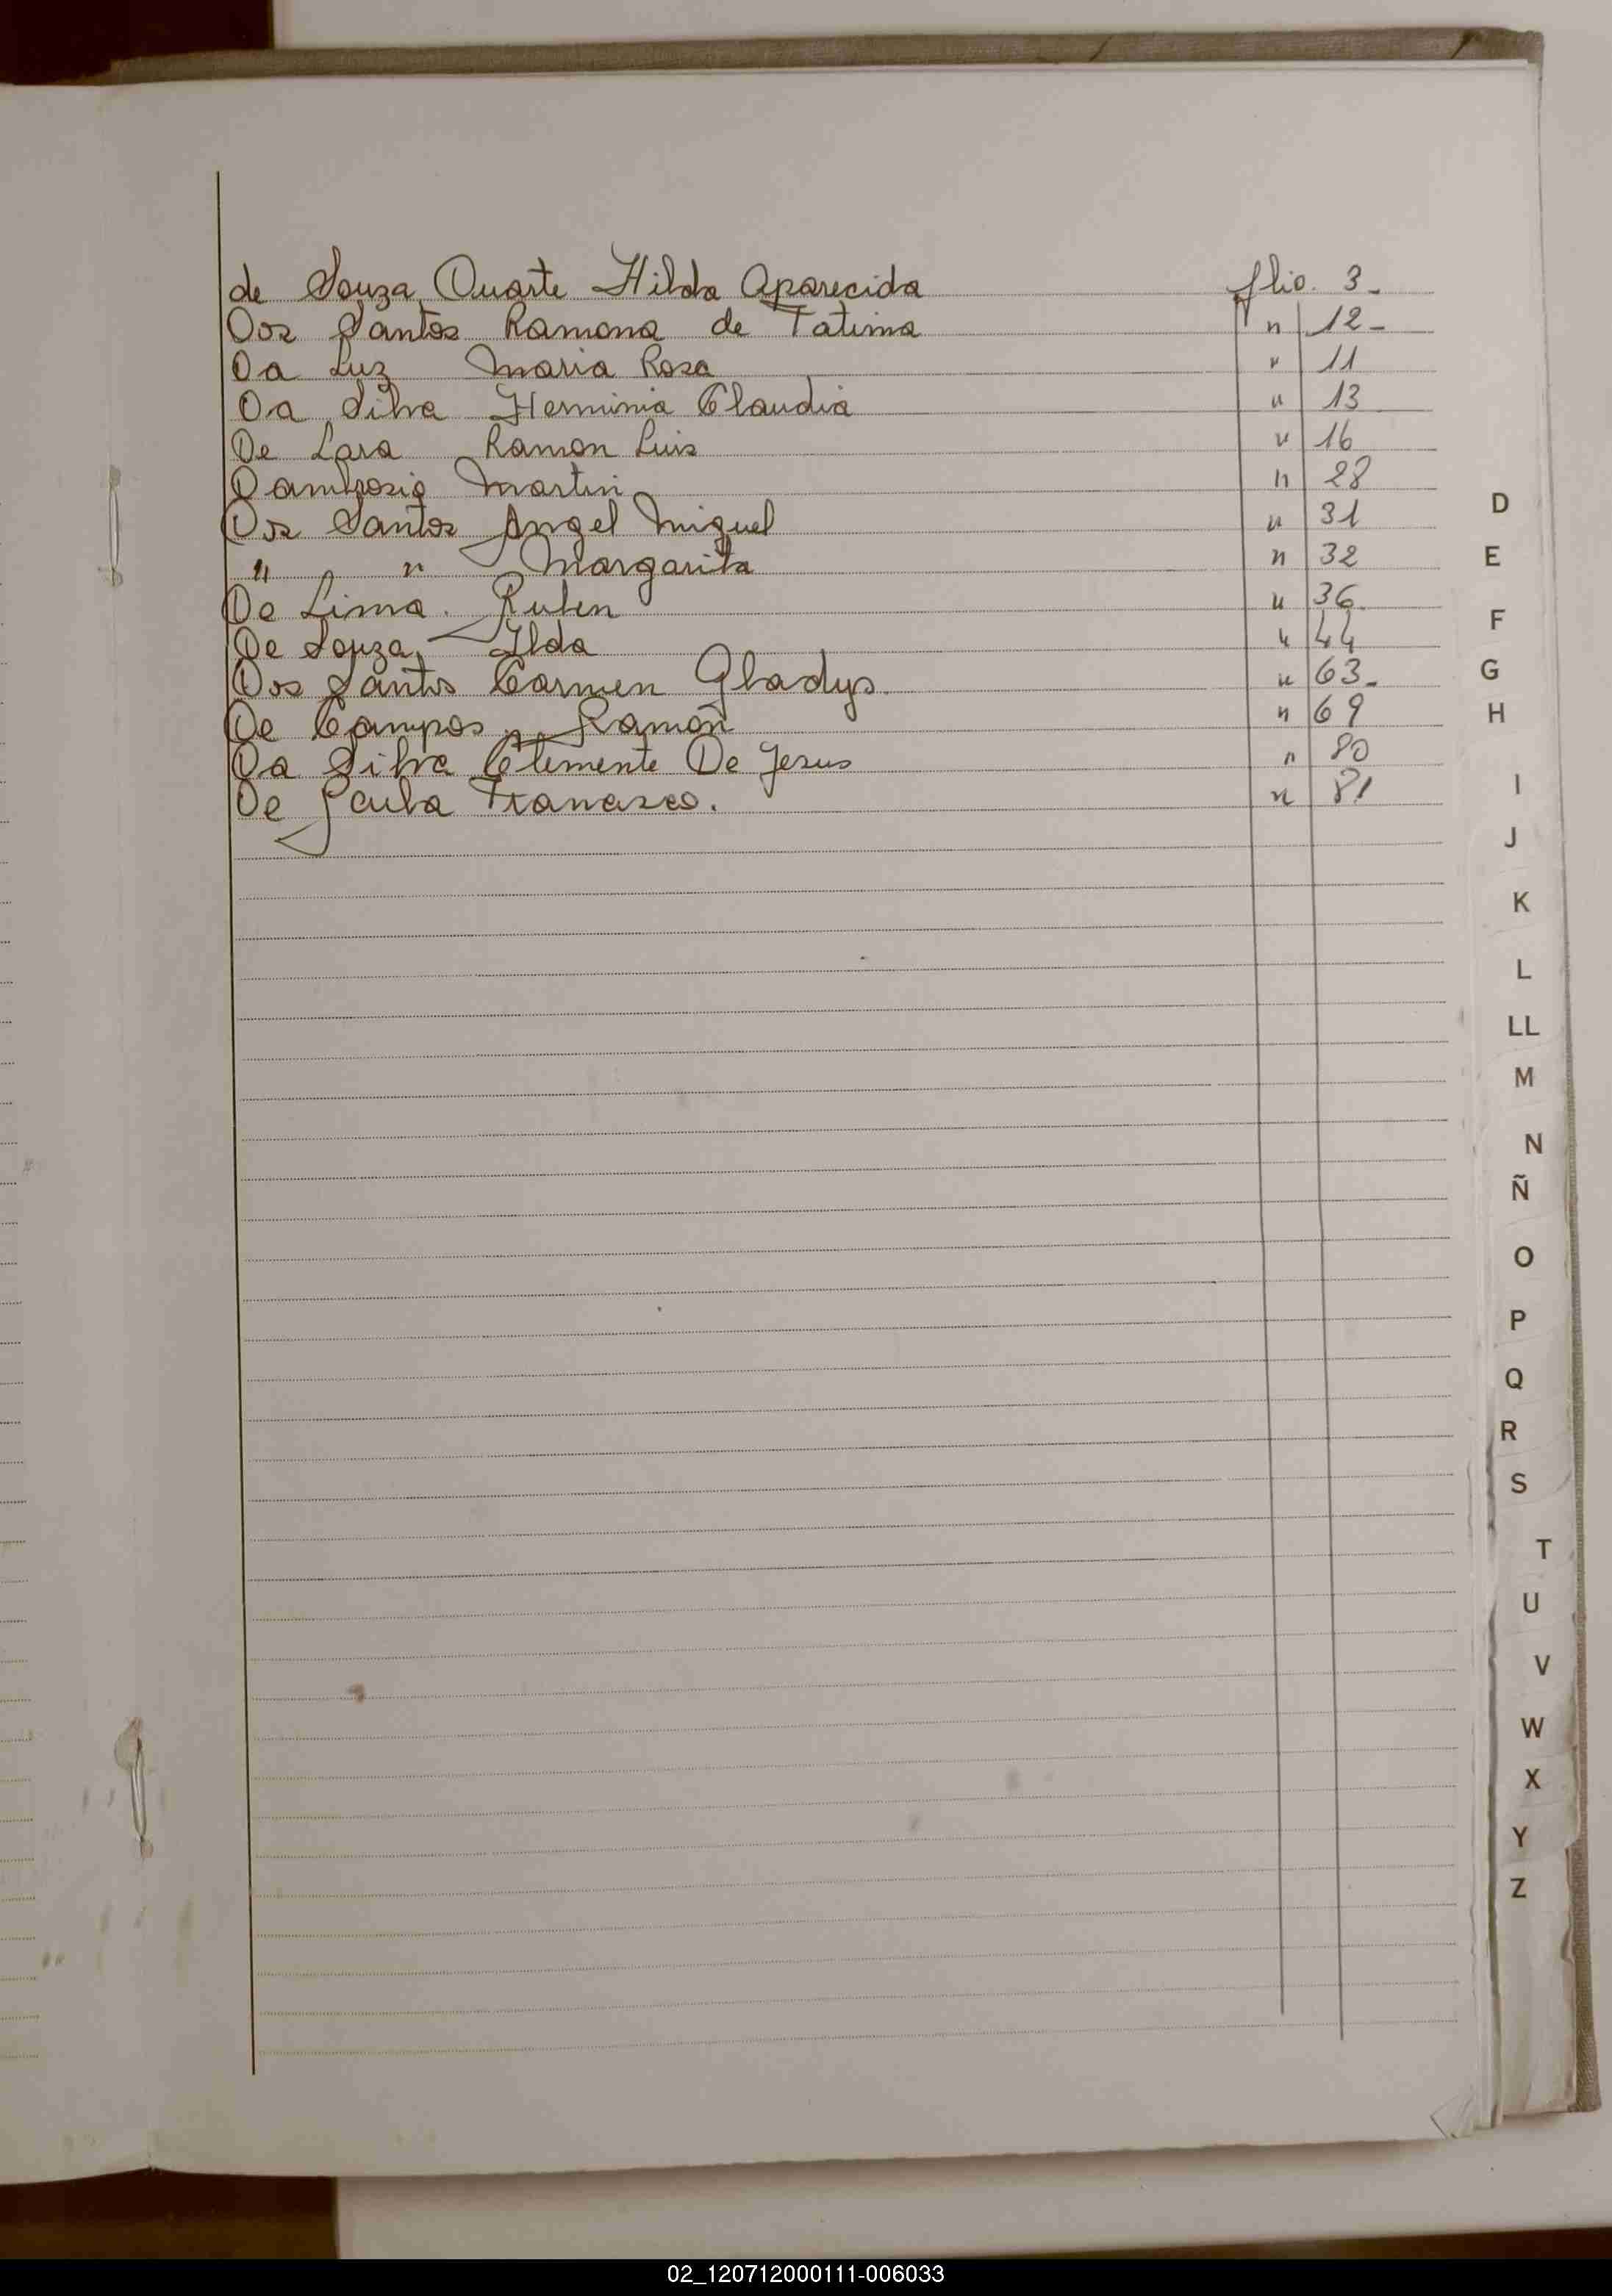 de Souza Duarte Hilda Aparecida flio. 3-
Dos Santos Ramona de Fatima " 12-
Da Luz Maria Rosa " 11
Da Silva Herminia Claudia " 13
De Lara Ramon Luis " 16
Dambrosio Martin " 28
Dos Santos Angel Miguel " 31
" " Margarita " 32
De Lima. Ruben " 36
De Souza Ilda " 44
Dos Santos Carmen Gladys. " 63-
De Campos Ramón " 69
Da Silva Clemente De Jesus " 80
De Paula Francisco. " 81
D
E
F
G
H
I
J
K
L
LL
M
N
Ñ
O
P
Q
R
S
T
U
V
W
X
Y
Z
02_120712000111-006033